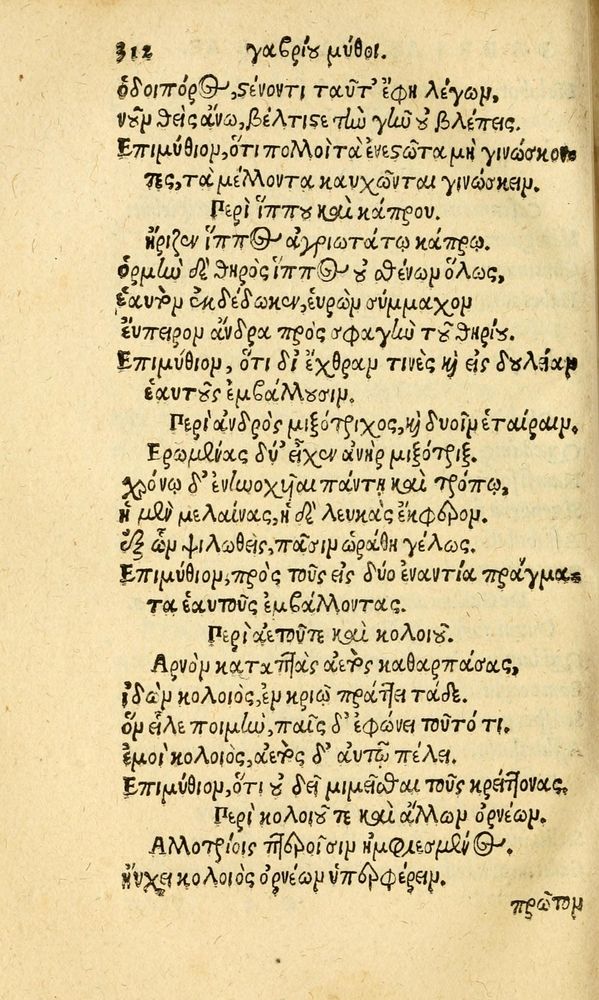 312 γαβρίου μῦθοι.
ὁδοιπόρος, στένοντι ταῦτ' ἔφη λέγων,
νοῦν θεὶς ἄνω, βέλτιστε τὴν γῆν οὐ βλέπεις.
Επιμύθιον, ὅτι πολλοὶ τὰ ἐνεστῶτα μὴ γινώσκον-
τες, τὰ μέλλοντα καυχῶνται γινώσκειν.
Περὶ ἵππου καὶ κάπρου.
ἤριζεν ἵππος ἀγριωτάτῳ κάπρῳ.
ὁρμὴν δὲ θηρὸς ἵππος οὐ σθένων ὅλως,
ἑαυτὸν ἐκδέδωκεν, εὑρὼν σύμμαχον
ἔυπειρον ἄνδρα πρὸς σφαγὴν τοῦ θηρίου.
Επιμύθιον, ὅτι δι' ἔχθραν τινὲς καὶ εἰς δουλείαν
ἑαυτοὺς ἐμβάλλουσιν.
Περὶ ἀνδρὸς μιξότριχος, καὶ δυοῖν ἑταίραιν.
Ερωμένας δύ' εἶχεν ἀνὴρ μιξότριξ.
χρόνῳ δ' ἐνωχλεῖται πάντῃ καὶ τρόπῳ,
ἡ μὲν μελαίνας, ἡ δὲ λευκὰς ἔκφερον.
ἐξ ὧν ψιλωθεὶς, πᾶσιν ὡράθη γέλως.
Επιμύθιον, πρὸς τοὺς εἰς δύο ἐναντία πράγμα-
τα ἑαυτοὺς ἐμβάλλοντας.
Περὶ ἀετοῦ τε καὶ κολοιοῦ.
Αρνὸν καταπτὰς ἀετὸς καθαρπάσας,
ἰδὼν κολοιὸς, ἐν κριῷ πράττει τάδε.
ὃν εἷλε ποιμὴν, παῖς δ' ἐφώνει τοῦτο τί.
ἐμοὶ κολοιὸς, ἀετὸς δ' αὐτῷ πέλει.
Επιμύθιον, ὅτι οὐ δεῖ μιμεῖσθαι τοὺς κρείττονας.
Περὶ κολοιοῦ τε καὶ ἄλλων ὀρνέων.
Αλλοτρίοις πτεροῖσιν ἠμφιεσμένος.
ἤυχει κολοιὸς ὀρνέων ὑπερφέρειν.
πρῶτον